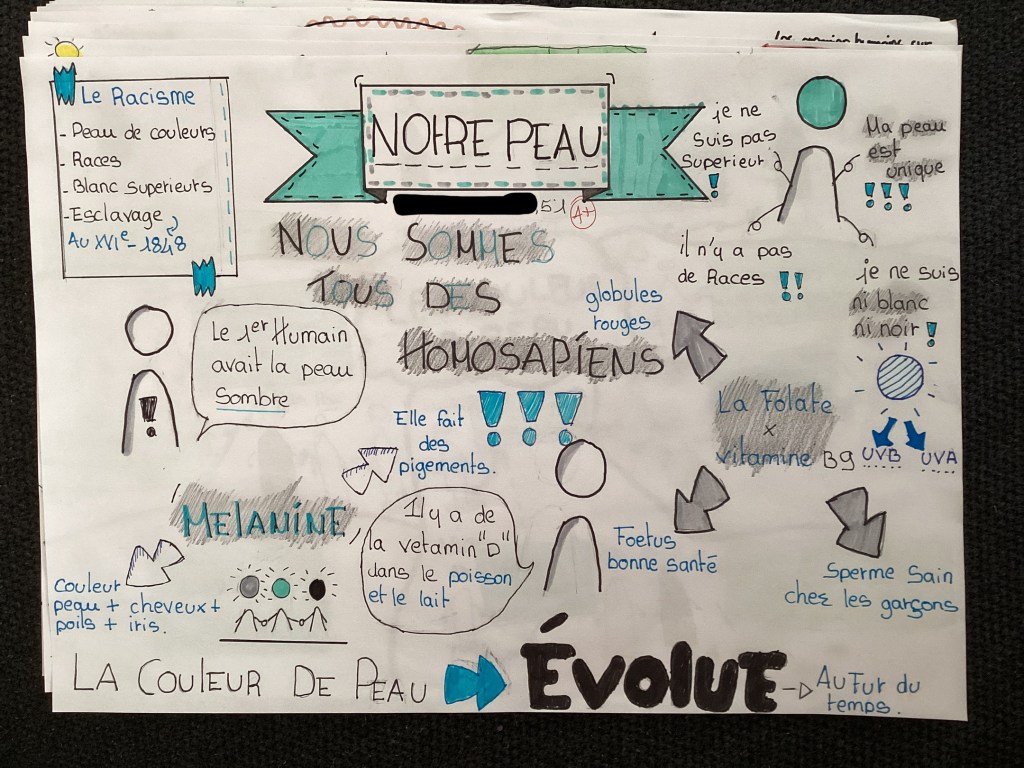 Le Racisme
- Peau de couleurs
- Races
- Blanc superieurs
- Esclavage
Au XVIe - 1848
NOTRE PEAU
51
A+
je ne
suis pas
Superieur
!
Ma peau
est
unique
!!!
il n'y a pas
de Races !!
je ne suis
ni blanc
ni noir !
NOUS SOMMES
TOUS DES
HOMOSAPIENS
!!!
Le 1er Humain
avait la peau
Sombre
!
globules
rouges
La Folate
x
vitamine B9
UVB UVA
Foetus
bonne santé
Sperme Sain
chez les garçons
Elle fait
des
pigements.
MELANINE
Couleur
peau + cheveux +
poils + iris.
Il y a de
la vetamin "D"
dans le poisson
et le lait
LA COULEUR DE PEAU ÉVOLUE -> Au Fur du
temps.